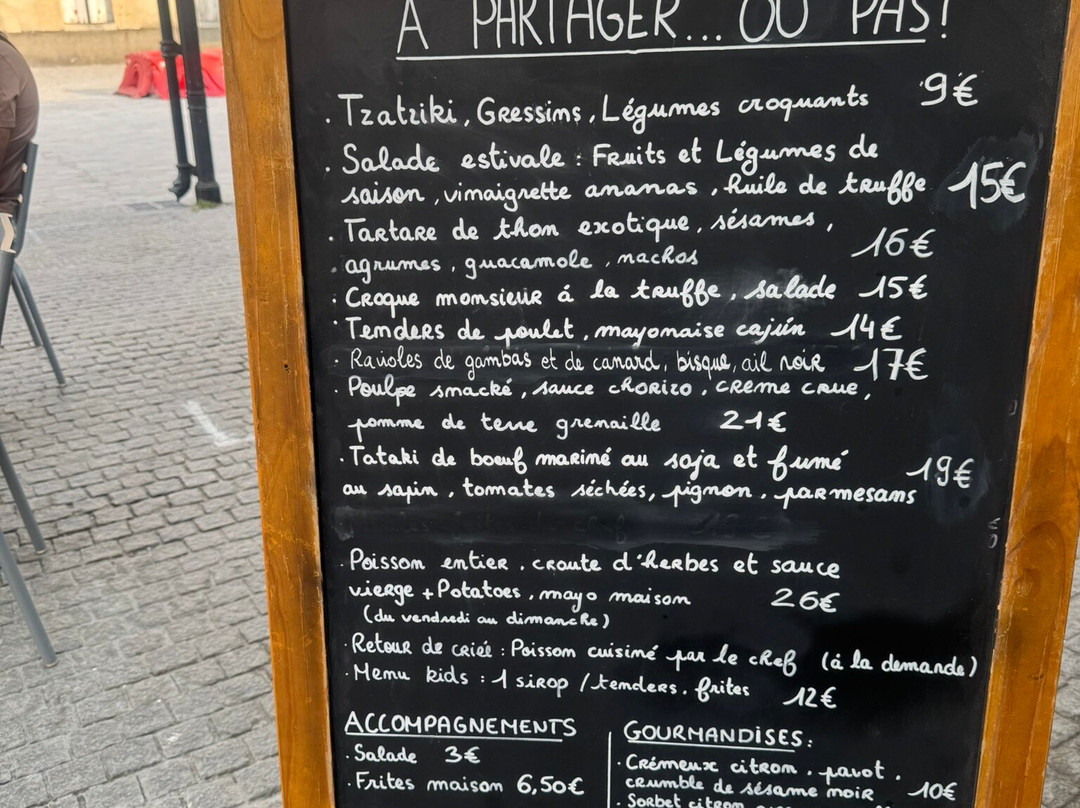 À PARTAGER... OU PAS!
. Tzatziki, Gressins, Légumes croquants 9€
. Salade estivale : Fruits et Légumes de
saison, vinaigrette ananas, huile de truffe 15€
. Tartare de thon exotique, sésames,
agrumes, guacamole, nachos 16€
. Croque monsieur á la truffe, salade 15€
. Tenders de poulet, mayonaise cajún 14€
. Ravioles de gambas et de canard, bisque, ail noir 17€
. Poulpe smacké, sauce chorizo, creme crue,
pomme de terre grenaille 21€
. Tataki de boeuf mariné au soja et fumé
au sapin, tomates séchées, pignon, parmesans 19€
. Poisson entier, croute d'herbes et sauce
vierge + Potatoes, mayo maison 26€
(du vendredi au dimanche)
. Retour de criée : Poisson cuisiné par le chef (á la demande)
. Menu kids : 1 sirop / tenders, frites 12€
ACCOMPAGNEMENTS
. Salade 3€
. Frites maison 6,50€
GOURMANDISES:
. Crémeux citron, pavot,
crumble de sésame noir 10€
. Sorbet citron